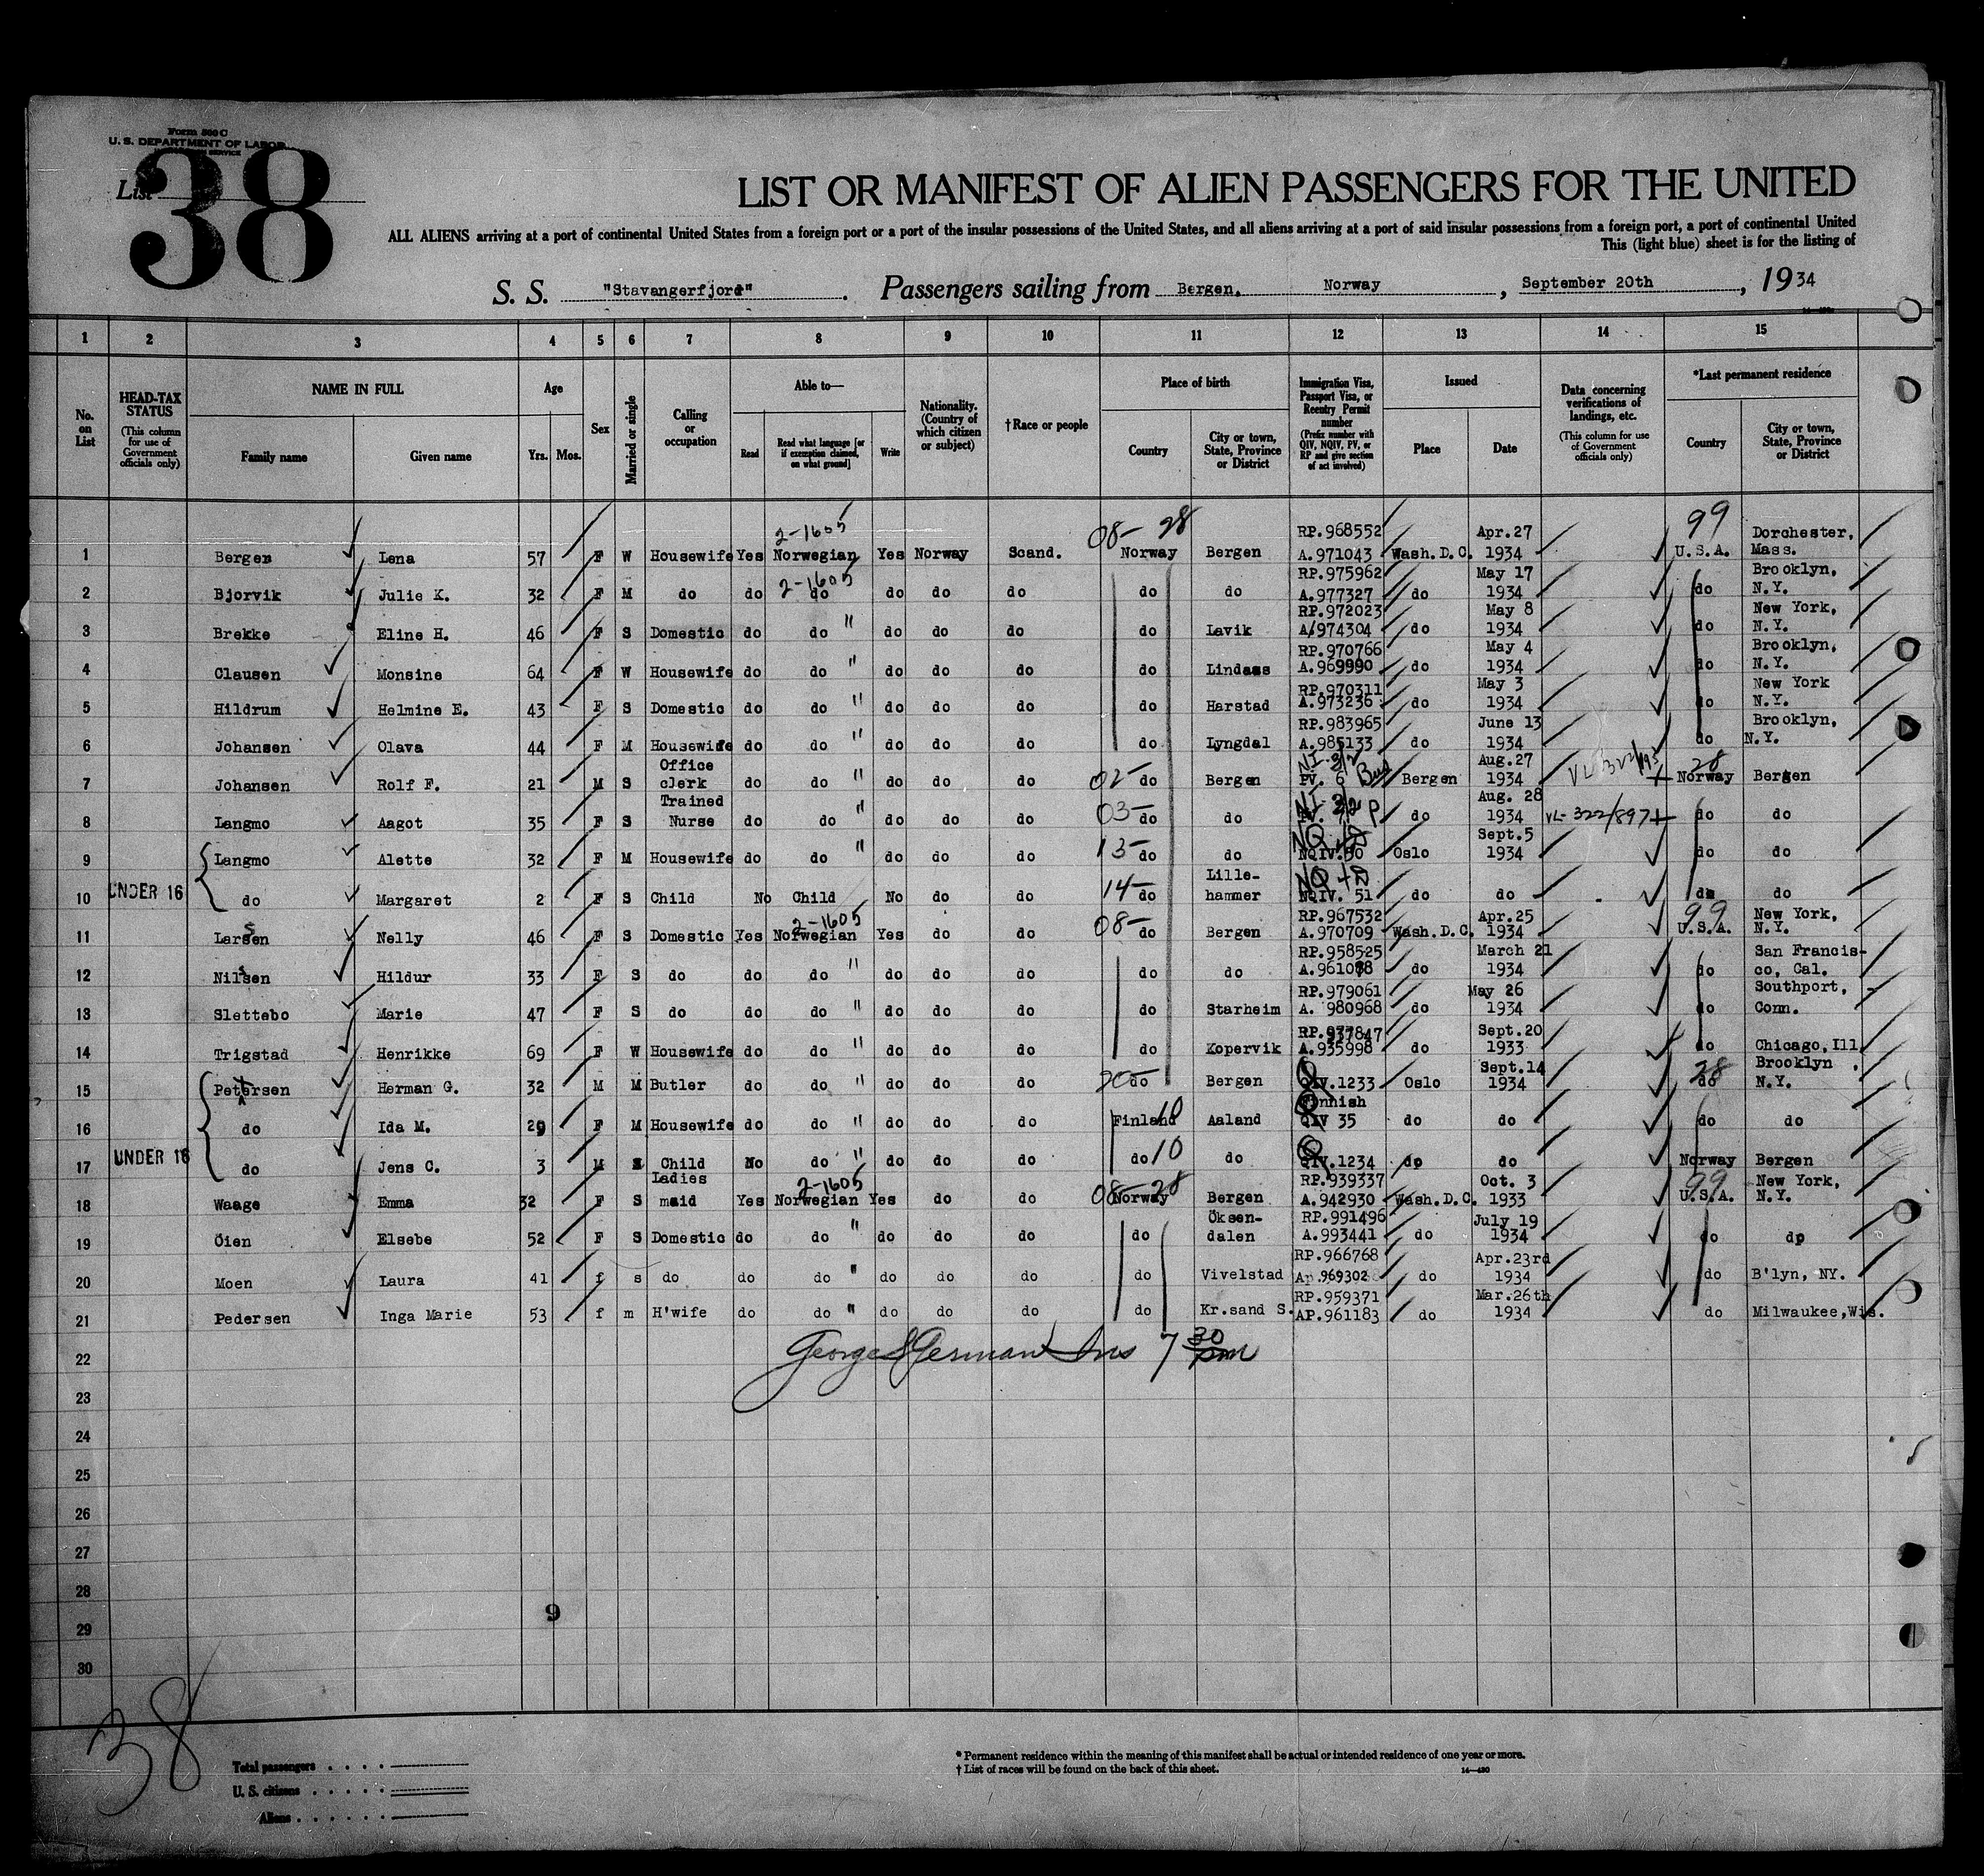 Form 500 C
U. S. DEPARTMENT OF LABOR
List 38
LIST OR MANIFEST OF ALIEN PASSENGERS FOR THE UNITED
ALL ALIENS arriving at a port of continental United States from a foreign port or a port of the insular possessions of the United States, and all aliens arriving at a port of said insular possessions from a foreign port, a port of continental United
This (light blue) sheet is for the listing of
S. S. "Stavangerfjord" . Passengers sailing from Bergen, Norway , September 20th , 1934
1 2 3 4 5 6 7 8 9 10 11 12 13 14 15
No. on List
HEAD-TAX STATUS (This column for use of Government officials only)
NAME IN FULL Family name Given name
Age Yrs. Mos.
Sex
Married or single
Calling or occupation
Able to— Read Read what language [or if exemption claimed, on what ground] Write
Nationality. (Country of which citizen or subject)
†Race or people
Place of birth Country City or town, State, Province or District
Immigration Visa, Passport Visa, or Reentry Permit number (Prefix number with QIV, NQIV, PV, or RP and give section of act involved)
Issued Place Date
Data concerning verifications of landings, etc. (This column for use of Government officials only)
*Last permanent residence Country City or town, State, Province or District
1 Bergen Lena 57 F W Housewife Yes 2-1605 Norwegian Yes Norway Scand. 08- 28 Norway Bergen RP.968552 A.971043 Wash.D.C. Apr.27 1934 99 U.S.A. Dorchester, Mass.
2 Bjorvik Julie K. 32 F M do do 2-1605 do do do do do do RP.975962 A.977327 do May 17 1934 do Brooklyn, N.Y.
3 Brekke Eline H. 46 F S Domestic do do " do do do do Lavik RP.972023 A/974304 do May 8 1934 do New York, N.Y.
4 Clausen Monsine 64 F W Housewife do do " do do do do Lindaas RP.970766 A.969990 do May 4 1934 do Brooklyn, N.Y.
5 Hildrum Helmine E. 43 F S Domestic do do " do do do do Harstad RP.970311 A.973236 do May 3 1934 do New York N.Y.
6 Johansen Olava 44 F M Housewife do do " do do do do Lyngdal RP.983965 A.985133 do June 13 1934 do Brooklyn, N.Y.
7 Johansen Rolf F. 21 M S Office clerk do do " do do do 02- do Bergen PV. 6 Bus Bergen Aug.27 1934 28 Norway Bergen
8 Langmo Aagot 35 F S Trained Nurse do do " do do do 03- do do P do Aug. 28 1934 VL-322/897 do do
9 Langmo Alette 32 F M Housewife do do " do do do 13- do do NQIV.50 Oslo Sept.5 1934 do do
UNDER 16
10 do Margaret 2 F S Child No Child No do do 14- do Lille- hammer NQIV. 51 do do do do
11 Larsen Nelly 46 F S Domestic Yes 2-1605 Norwegian Yes do do 08- do Bergen RP.967532 A.970709 Wash.D.C. Apr.25 1934 99 U.S.A. New York, N.Y.
12 Nilsen Hildur 33 F S do do do " do do do do do RP.958525 do March 21 1934 do San Francis- co, Cal.
13 Slettebo Marie 47 F S do do do " do do do do Starheim RP.979061 A. 980968 do May 26 1934 do Southport, Conn.
14 Trigstad Henrikke 69 F W Housewife do do " do do do do Kopervik RP.937847 A.935998 do Sept.20 1933 do Chicago, Ill.
15 Petersen Herman G. 32 M M Butler do do " do do do do Bergen QIV.1233 Oslo Sept.14 1934 28 do Brooklyn N.Y.
16 do Ida M. 29 F M Housewife do do " do do do Finland 10 Aaland Finnish QIV 35 do do do do
UNDER 16
17 do Jens C. 3 M S Child No do " do do do do 10 do QIV.1234 do do Norway Bergen
18 Waage Emma 32 F S Ladies maid Yes 2-1605 Norwegian Yes do do 08- 28 Norway Bergen RP.939337 A.942930 Wash.D.C. Oct. 3 1933 99 U.S.A. New York, N.Y.
19 Öien Elsebe 52 F S Domestic do do " do do do do Öksen- dalen RP.991496 A.993441 do July 19 1934 do do
20 Moen Laura 41 f s do do do " do do do do Vivelstad RP.966768 Ap.969302 do Apr.23rd 1934 do B'lyn, NY.
21 Pedersen Inga Marie 53 f m H'wife do do " do do do do Kr.sand S. RP.959371 AP.961183 do Mar.26th 1934 do Milwaukee,Wis.
22 George S German Ins 7 30 pm
23
24
25
26
27
28
29 9
30
38
Total passengers . . . .
U. S. citizens . . . . .
Aliens . . . . . .
* Permanent residence within the meaning of this manifest shall be actual or intended residence of one year or more.
† List of races will be found on the back of this sheet.
14—430